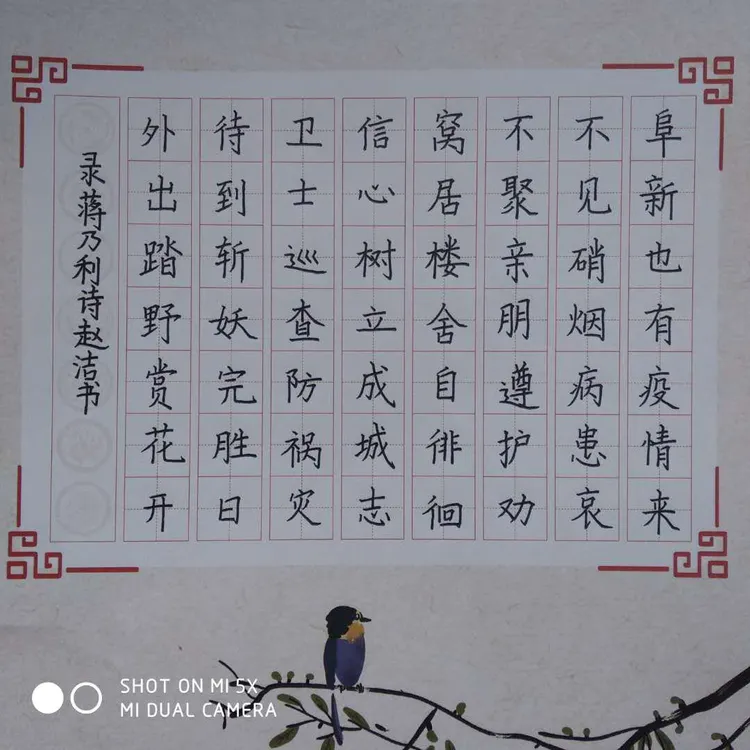 阜新也有疫情来
不见硝烟病患哀
不聚亲朋遵护劝
窝居楼舍自徘徊
信心树立成城志
卫士巡查防祸灾
待到斩妖完胜日
外出踏野赏花开
录蒋乃利诗赵洁书
SHOT ON MI 5X
MI DUAL CAMERA